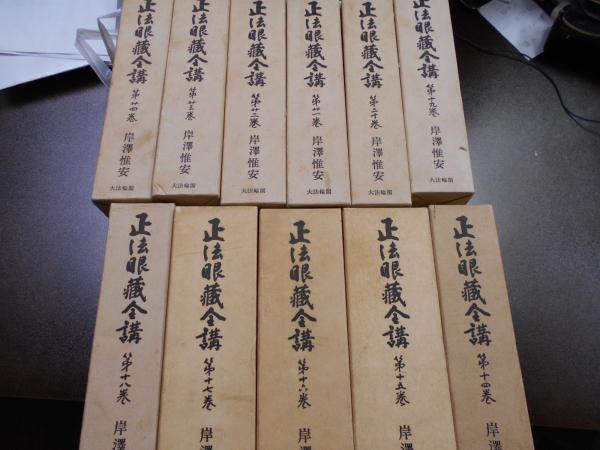 正法眼藏全講 第廿四巻 岸澤惟安 大法輪閣
正法眼藏全講 第廿三巻 岸澤惟安 大法輪閣
正法眼藏全講 第廿二巻 岸澤惟安 大法輪閣
正法眼藏全講 第廿一巻 岸澤惟安 大法輪閣
正法眼藏全講 第二十巻 岸澤惟安 大法輪閣
正法眼藏全講 第十九巻 岸澤惟安 大法輪閣
正法眼藏全講 第十八巻 岸澤
正法眼藏全講 第十七巻 岸
正法眼藏全講 第十六巻 岸
正法眼藏全講 第十五巻 岸
正法眼藏全講 第十四巻 岸